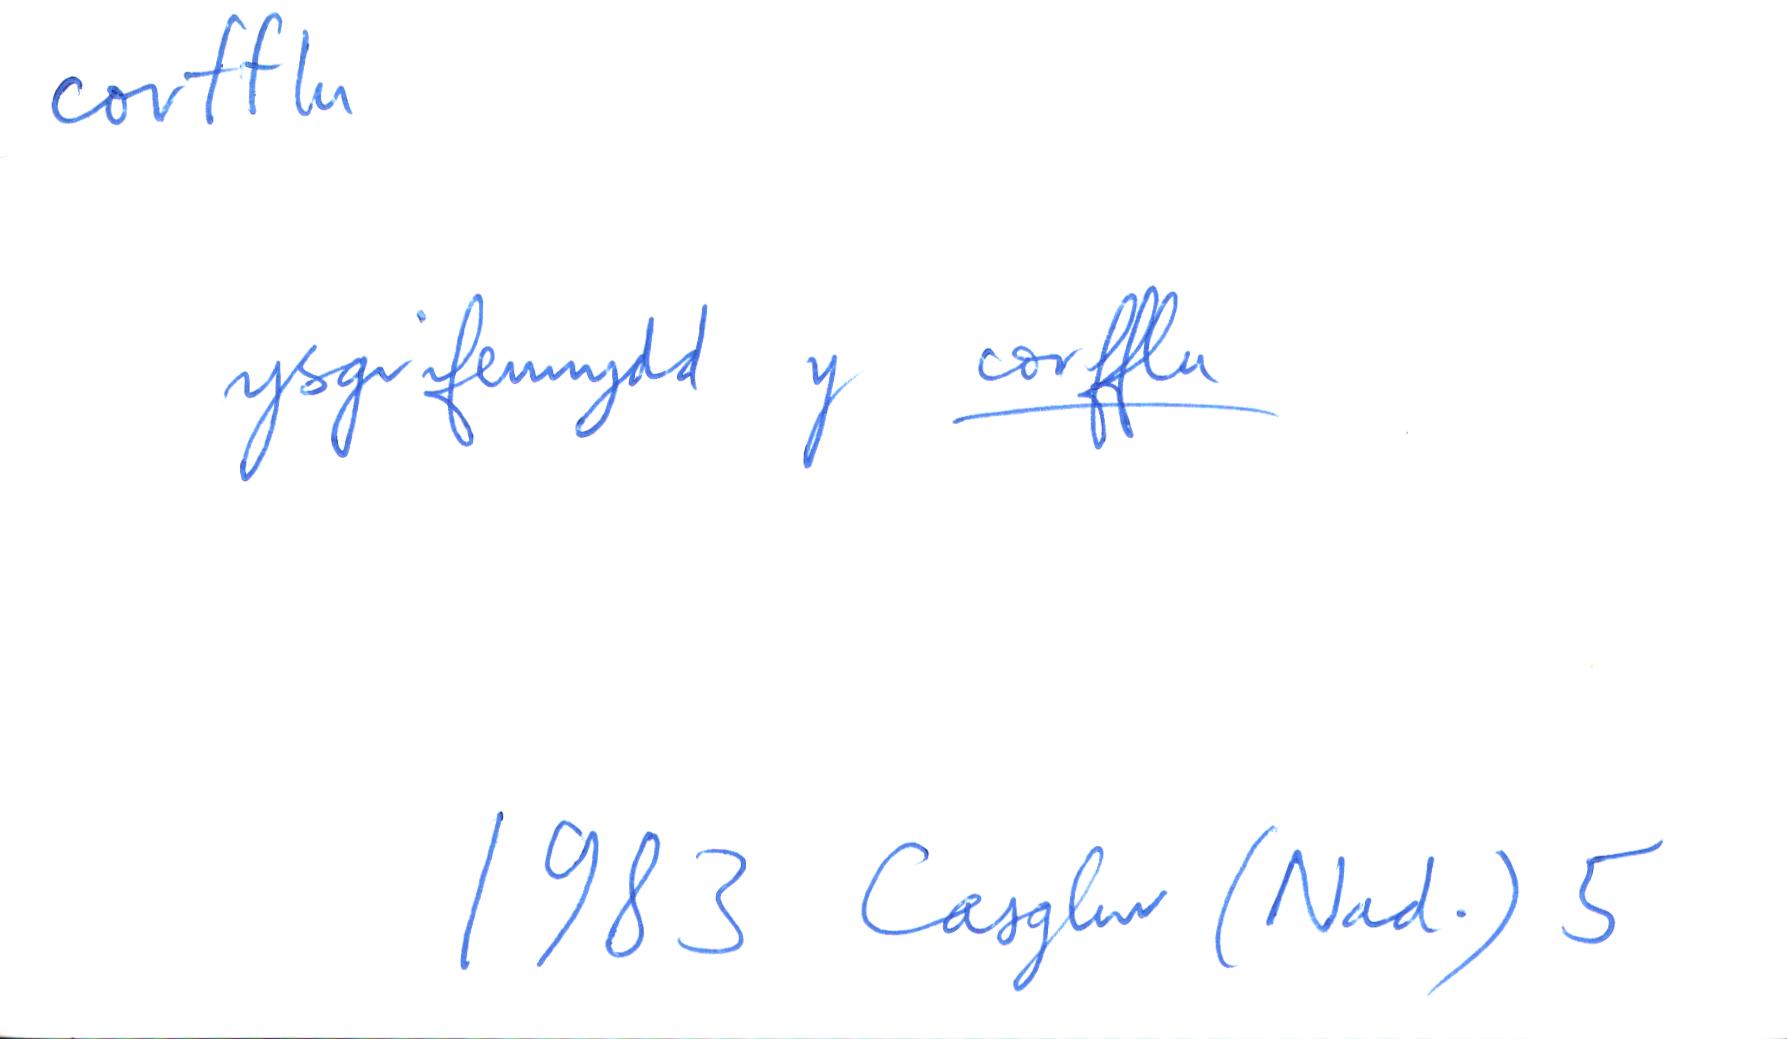 corfflu
ysgrifennydd y corfflu
1983 Casglwr (Nad.) 5